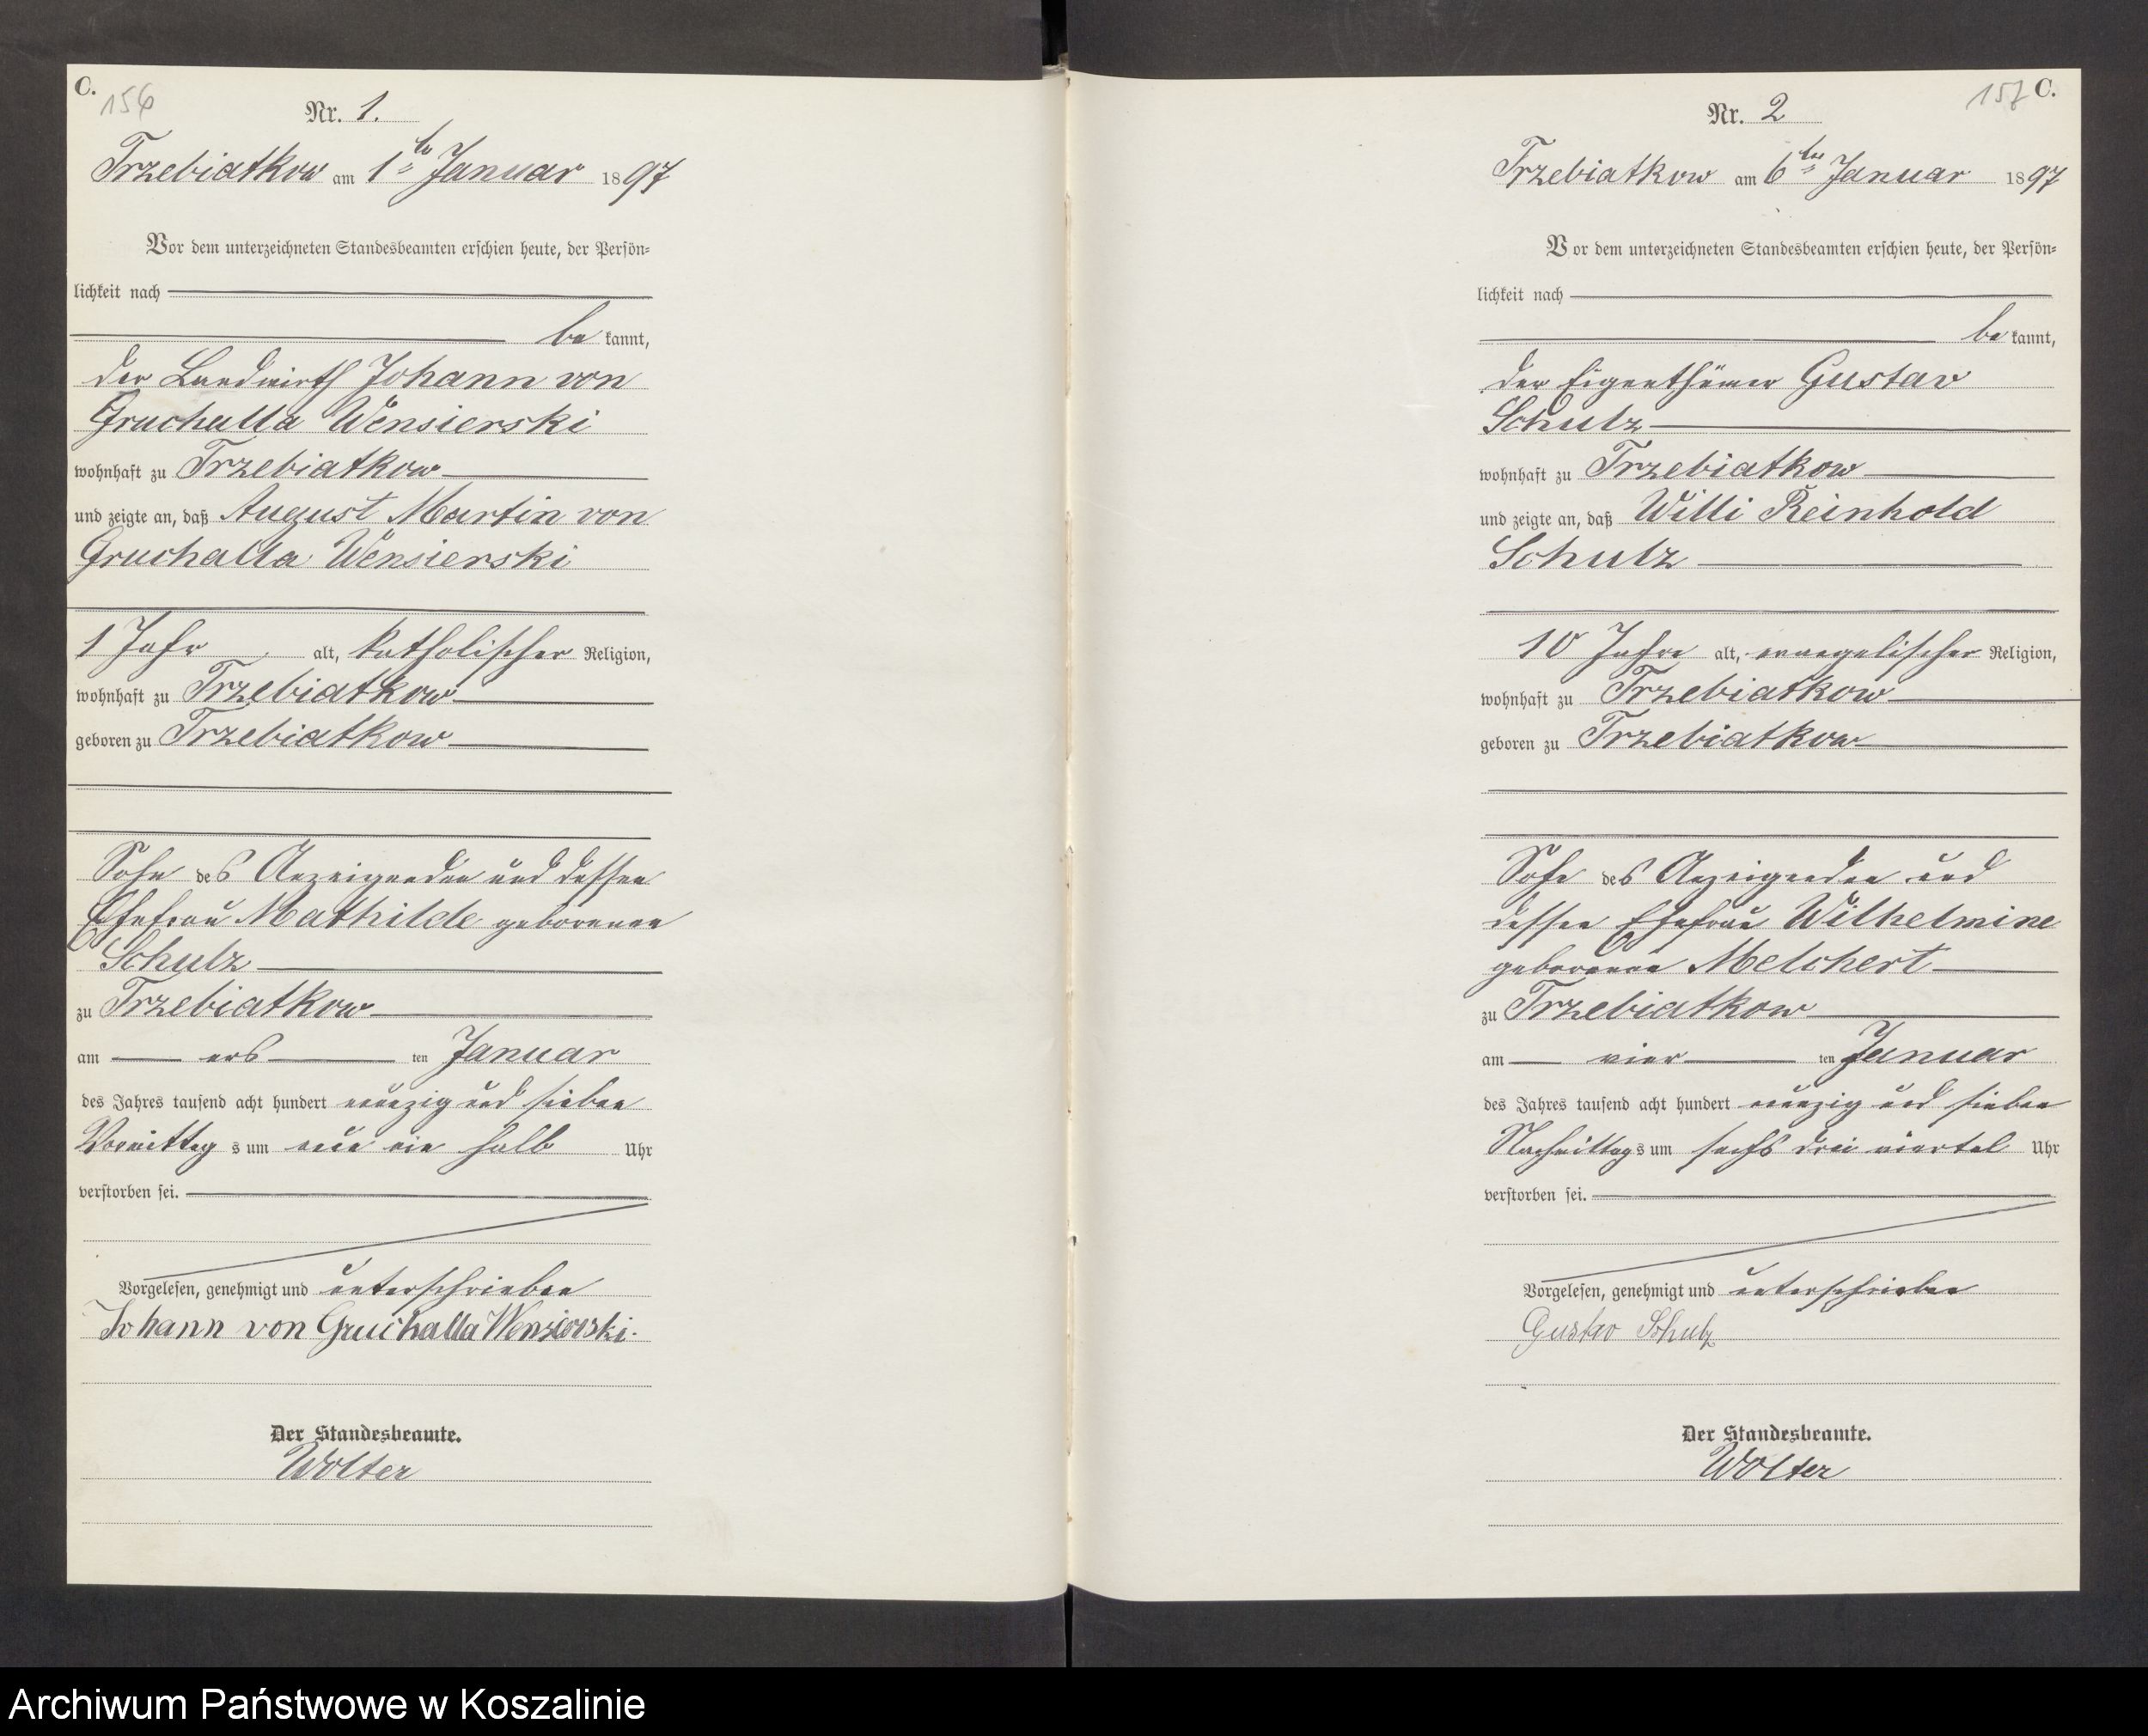 C. 156
Nr. 1.
Trzebiatkow am 1ten Januar 1897
Vor dem unterzeichneten Standesbeamten erschien heute, der Persön-
lichkeit nach
be kannt,
der Landwirth Johann von
Gruchalla Wensierski
wohnhaft zu Trzebiatkow
und zeigte an, daß August Martin von
Gruchalla Wensierski
1 Jahr alt, katholischer Religion,
wohnhaft zu Trzebiatkow
geboren zu Trzebiatkow
Sohn des Anzeigenden und dessen
Ehefrau Mathilde geborenen
Schulz
zu Trzebiatkow
am ers ten Januar
des Jahres tausend acht hundert neunzig und sieben
Vormittag s um neun ein halb Uhr
verstorben sei.
Vorgelesen, genehmigt und unterschrieben
Johann von Gruchalla Wensierski.
Der Standesbeamte.
Wolter
157 C.
Nr. 2
Trzebiatkow am 6ten Januar 1897
Vor dem unterzeichneten Standesbeamten erschien heute, der Persön-
lichkeit nach
be kannt,
der Eigenthümer Gustav
Schulz
wohnhaft zu Trzebiatkow
und zeigte an, daß Willi Reinhold
Schulz
10 Jahre alt, evangelischer Religion,
wohnhaft zu Trzebiatkow
geboren zu Trzebiatkow
Sohn des Anzeigenden und
dessen Ehefrau Wilhelmine
geborenen Melchert
zu Trzebiatkow
am vier ten Januar
des Jahres tausend acht hundert neunzig und sieben
Nachmittag s um sechs drei viertel Uhr
verstorben sei.
Vorgelesen, genehmigt und unterschrieben
Gustav Schulz
Der Standesbeamte.
Wolter
Archiwum Państwowe w Koszalinie